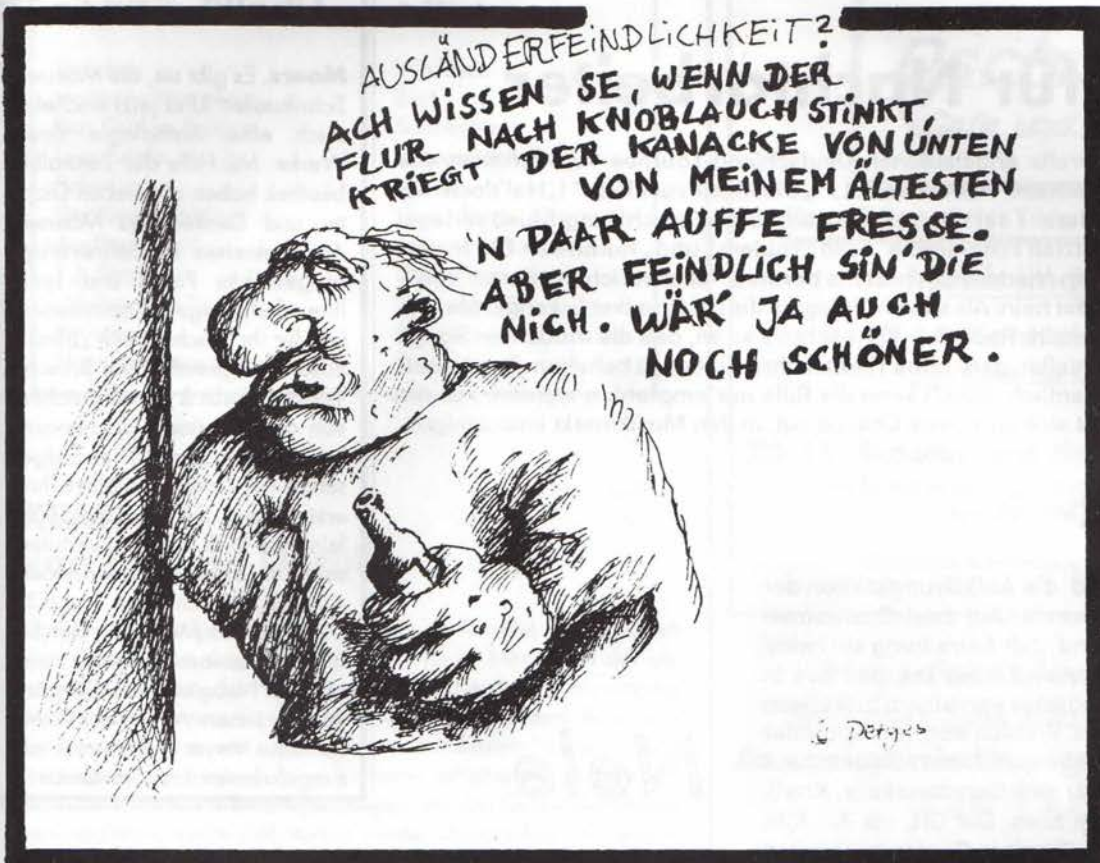 AUSLÄNDERFEINDLICHKEIT?
ACH WISSEN SE WENN DER
FLUR NACH KNOBLAUCH STINKT,
KRIEGT DER KANACKE VON UNTEN
VON MEINEM ÄLTESTEN
N' PAAR AUFFE FRESSE.
ABER FEINDLICH SIN' DIE
NICH. WÄR' JA AUCH
NOCH SCHÖNER.
Derges